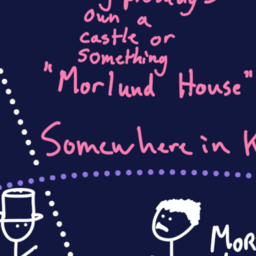 own a
castle or
something
"Morlund House"
Somewhere in K
MOR